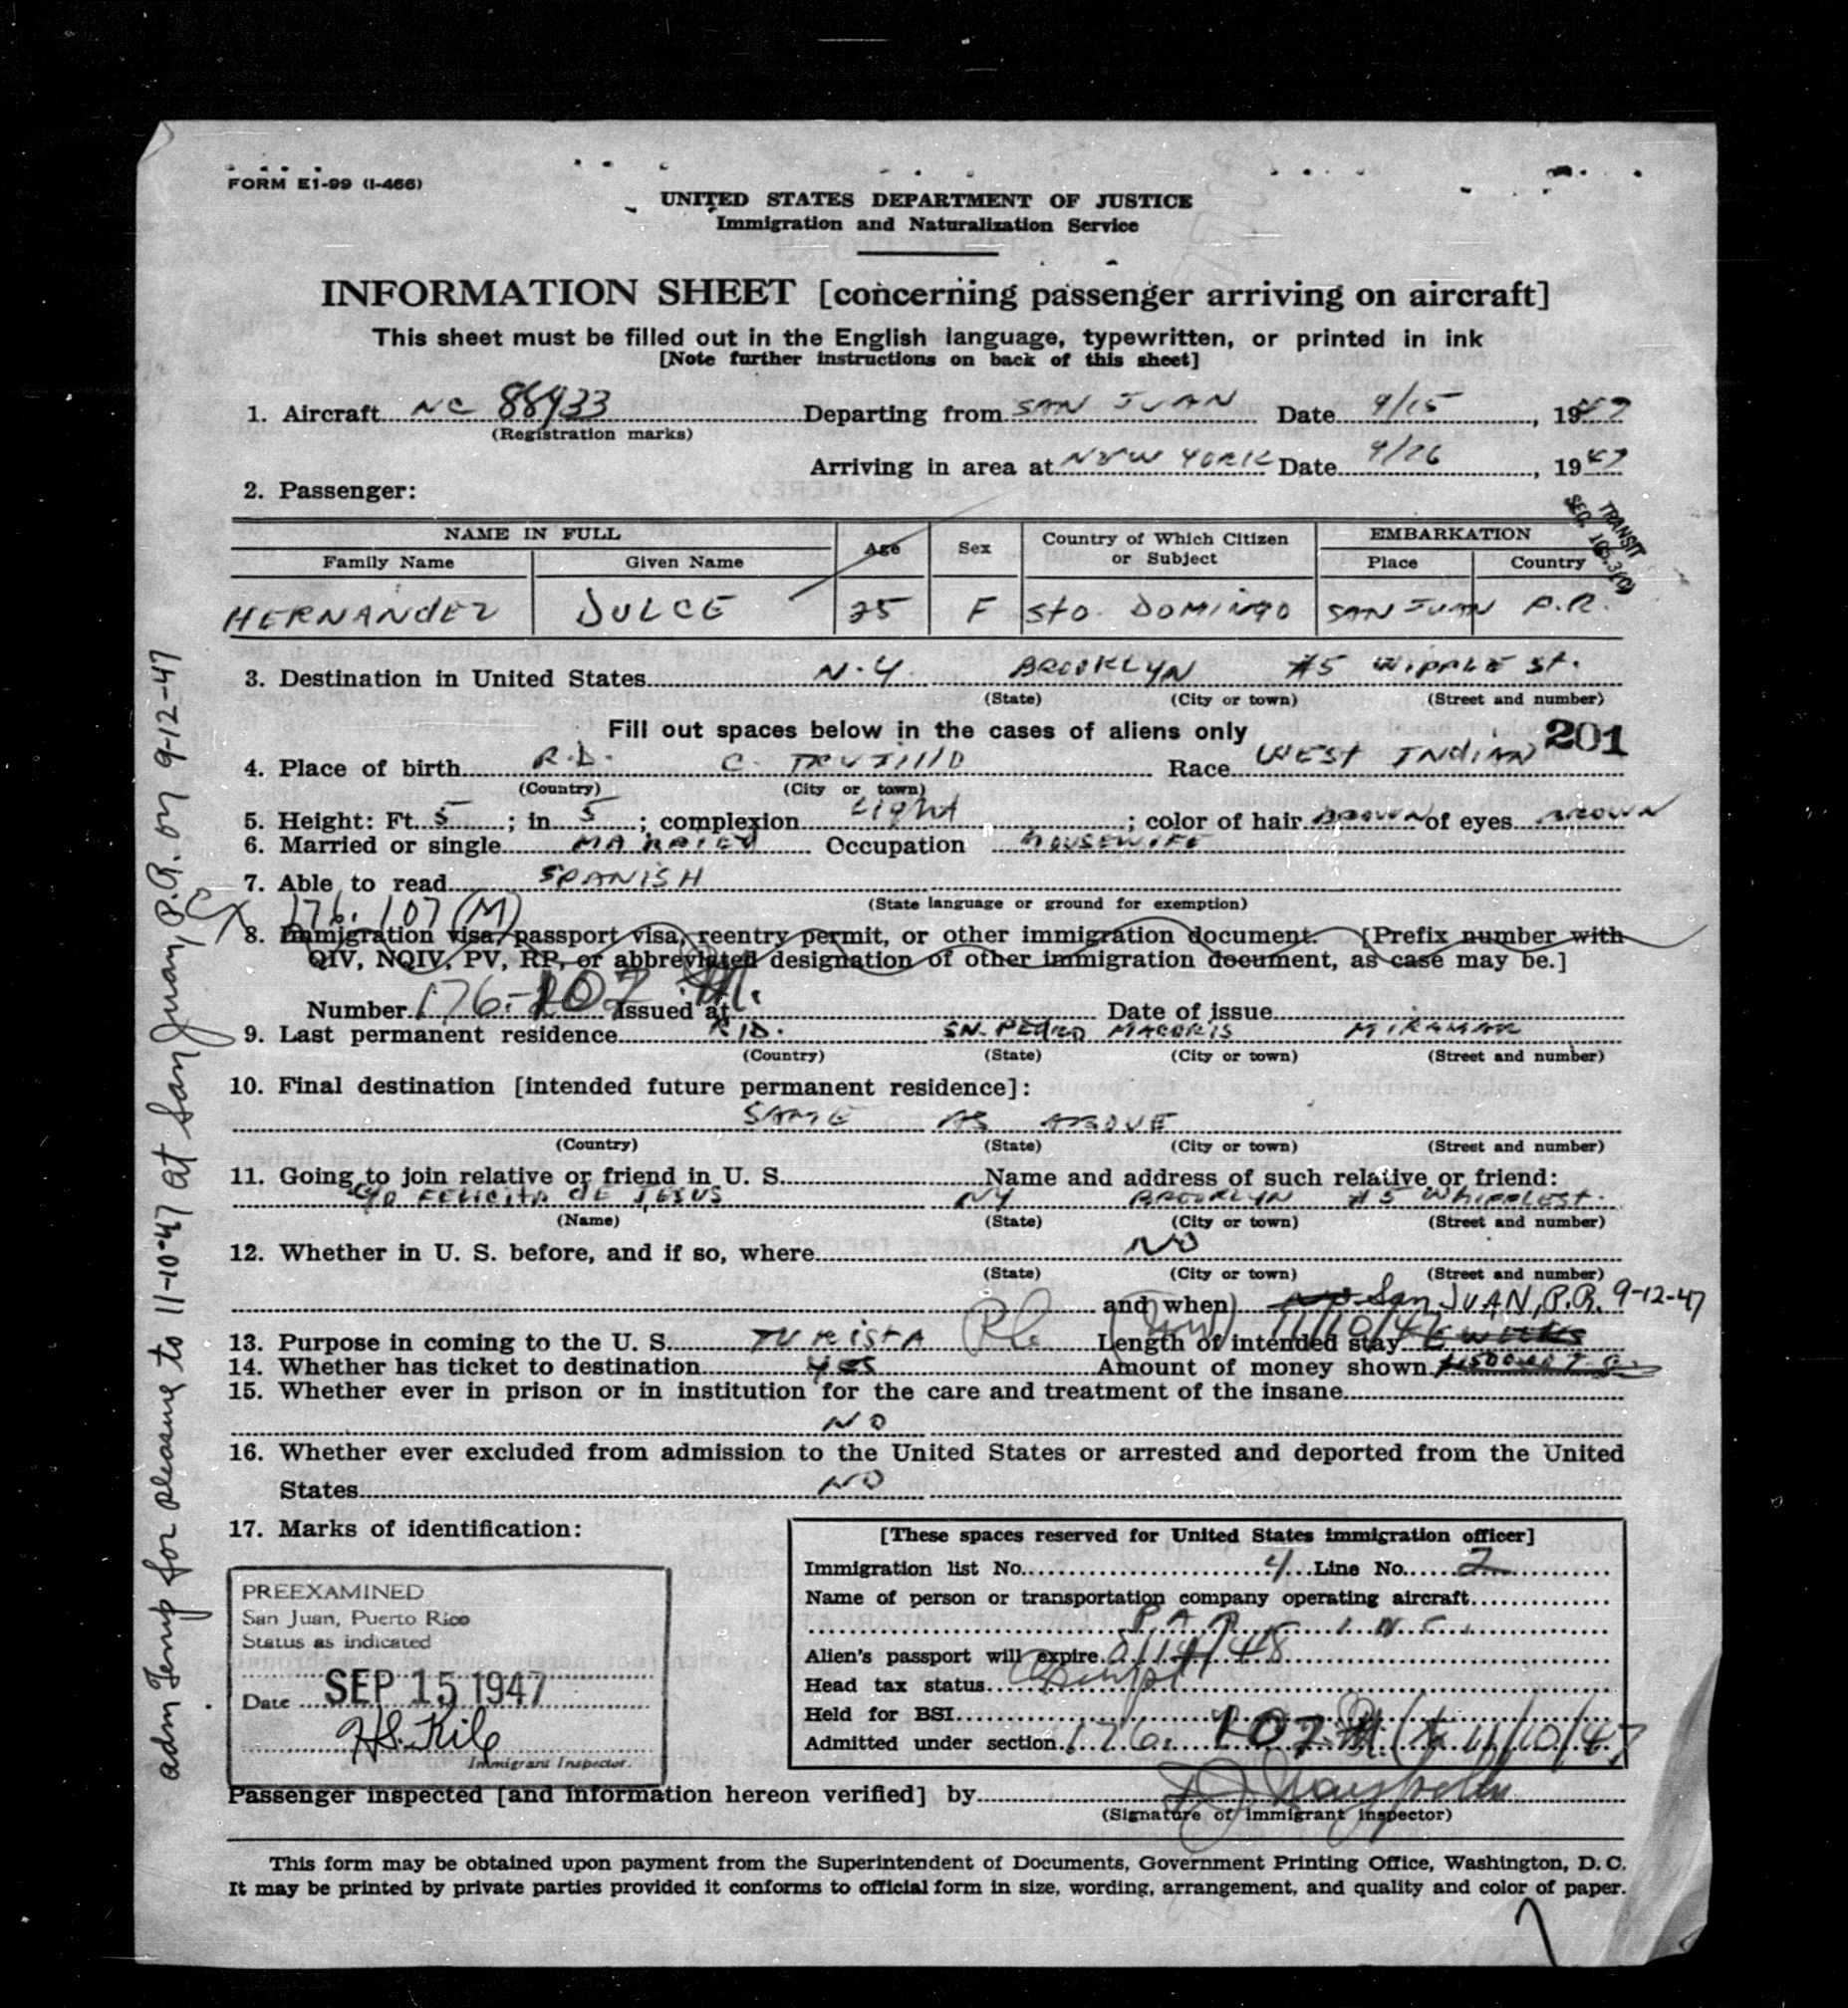 FORM E1-99 (I-466)
UNITED STATES DEPARTMENT OF JUSTICE
Immigration and Naturalization Service
INFORMATION SHEET [concerning passenger arriving on aircraft]
This sheet must be filled out in the English language, typewritten, or printed in ink
[Note further instructions on back of this sheet]
1. Aircraft NC 88933 Departing from SAN JUAN Date 9/15, 1947
(Registration marks)
Arriving in area at NEW YORK Date 9/26, 1947
2. Passenger:
TRANSIT
SEC. 105.3(C)
NAME IN FULL Age Sex Country of Which Citizen or Subject EMBARKATION
Family Name Given Name Place Country
HERNANDEZ DULCE 25 F Sto. DOMINGO SAN JUAN P.R.
3. Destination in United States N.Y. BROOKLYN #5 WIPPLE St.
(State) (City or town) (Street and number)
Fill out spaces below in the cases of aliens only 201
4. Place of birth R.D. C. TRUJILLO Race WEST INDIAN
(Country) (City or town)
5. Height: Ft. 5; in 5; complexion Light; color of hair BROWN of eyes BROWN
6. Married or single MARRIED Occupation HOUSEWIFE
7. Able to read SPANISH
(State language or ground for exemption)
176.107(M)
8. Immigration visa, passport visa, reentry permit, or other immigration document. [Prefix number with
QIV, NQIV, PV, RP, or abbreviated designation of other immigration document, as case may be.]
Number 176-107 M. Issued at Date of issue
9. Last permanent residence R.D. SN. PEDRO MACORIS MIRAMAR
(Country) (State) (City or town) (Street and number)
10. Final destination [intended future permanent residence]:
SAME AS ABOVE
(Country) (State) (City or town) (Street and number)
11. Going to join relative or friend in U. S. Name and address of such relative or friend:
c/o FELICITA de JESUS NY BROOKLYN #5 WHIPPLE St.
(Name) (State) (City or town) (Street and number)
12. Whether in U. S. before, and if so, where NO
(State) (City or town) (Street and number)
and when NO San JUAN, P.R. 9-12-47
13. Purpose in coming to the U. S. TURISTA Length of intended stay 11/10/47 6 WEEKS
14. Whether has ticket to destination yes Amount of money shown
15. Whether ever in prison or in institution for the care and treatment of the insane
NO
16. Whether ever excluded from admission to the United States or arrested and deported from the United
States NO
17. Marks of identification:
PREEXAMINED
San Juan, Puerto Rico
Status as indicated
Date SEP 15 1947
H.S. Kile
Immigrant Inspector.
[These spaces reserved for United States immigration officer]
Immigration list No. 4 Line No. 2
Name of person or transportation company operating aircraft
P.A.A. INC.
Alien's passport will expire /14/48
Head tax status Exempt
Held for BSI
Admitted under section 176. 107 M (to 11/10/47
Passenger inspected [and information hereon verified] by
(Signature of immigrant inspector)
This form may be obtained upon payment from the Superintendent of Documents, Government Printing Office, Washington, D. C.
It may be printed by private parties provided it conforms to official form in size, wording, arrangement, and quality and color of paper.
adm Temp for pleasure to 11-10-47 at San Juan, P.R. on 9-12-47